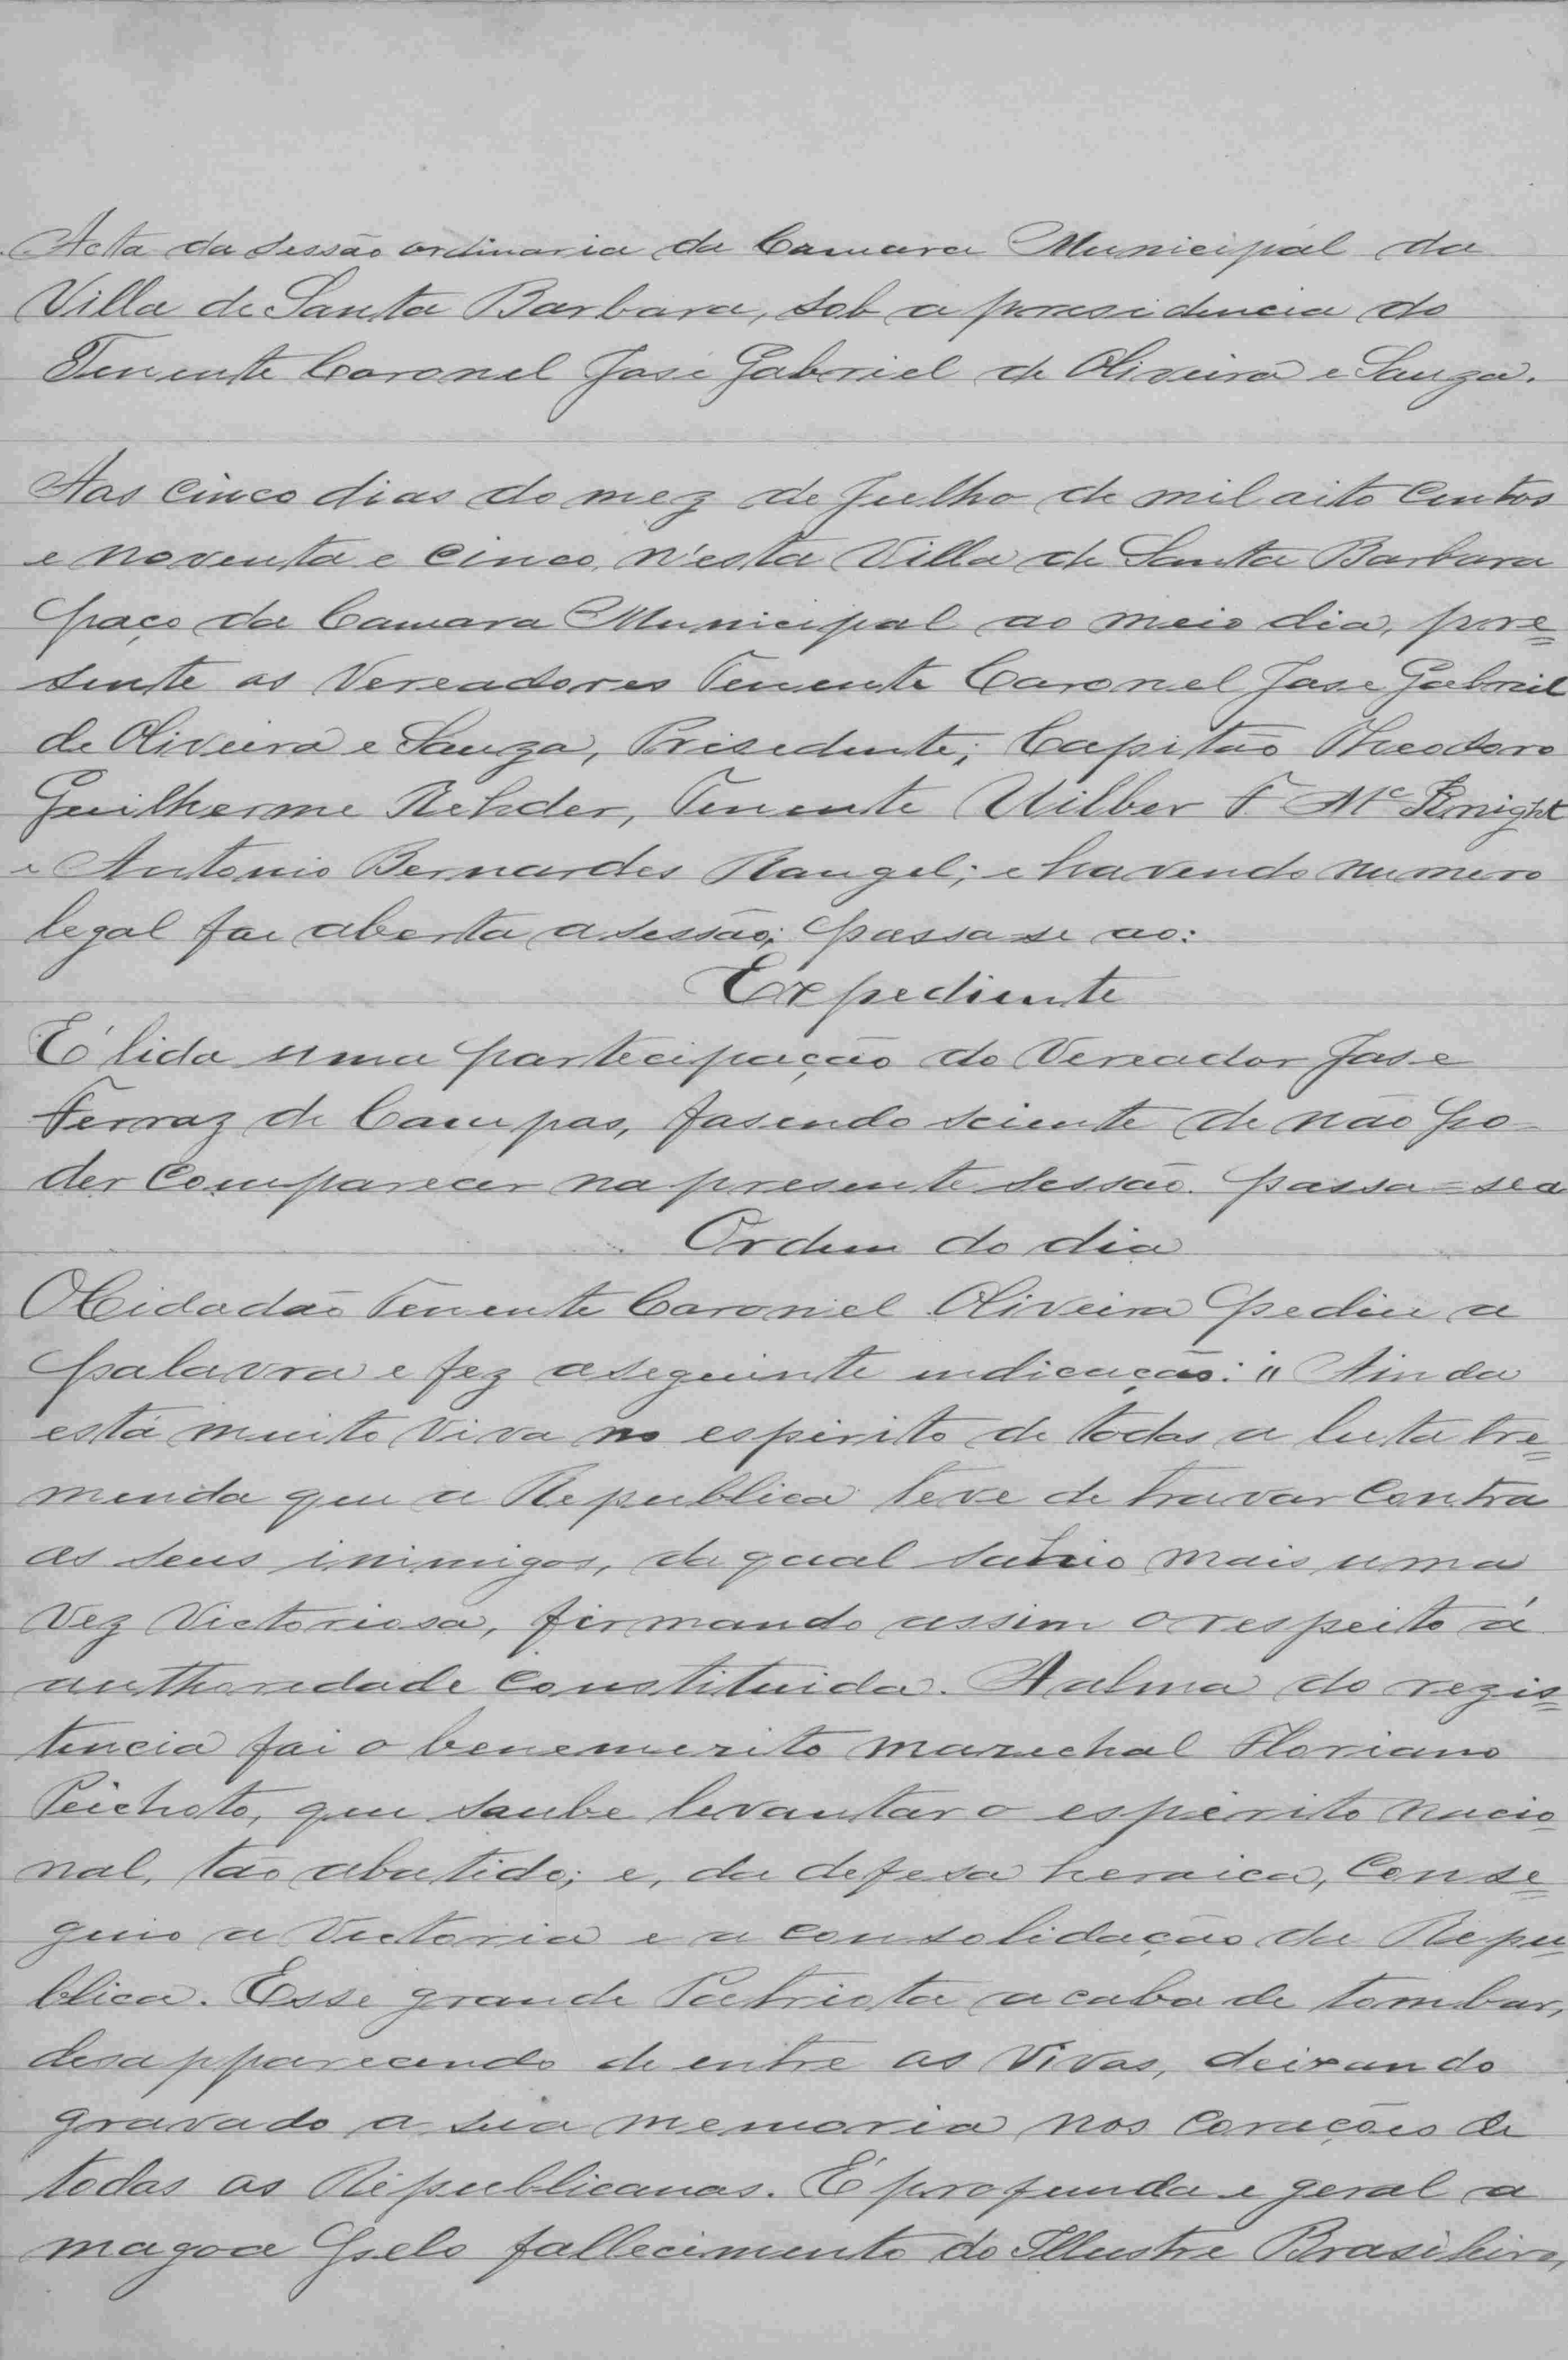 Acta da sessão ordinaria da Camara Municipal da
Villa de Santa Barbara, sob a presidencia do
Tenente Coronel José Gabriel de Oliveira e Souza.
Aos cinco dias do mez de Julho de mil oito centos
e noventa e cinco, n'esta Villa de Santa Barbara
Paço da Camara Municipal ao meio dia, pre=
sente os Vereadores Tenente Coronel Jose Gabriel
de Oliveira e Souza, Presidente; Capitão Theodoro
Guilherme Rehder, Tenente Wilber F. Mc Knight
e Antonio Bernardes Rangel; e havendo numero
legal foi aberta a sessão; passa se ao:
Expediente
É lida uma partecipação do Vereador Jose
Ferraz de Campos, fasendo sciente de não po-
der comparecer na presente sessão. Passa=se a
Ordem do dia
O Cidadão Tenente Coronel Oliveira pediu a
palavra e fez a seguinte indicação: "Ainda
está muito viva no espirito de todos a luta tre=
menda que a Republica teve de travar contra
os seus inimigos, da qual sahio mais uma
vez victoriosa, firmando assim o respeito á
authoredade constituida. A alma do rezis=
tencia foi o benemerito marechal Floriano
Peichoto, que soube levantar o espirito nacio=
nal, tão abatido; e, da defesa heroica, conse=
guio a victoria e a consolidação da Repu=
blica. Esse grande Patriota acaba de tombar,
desapparecendo de entre os vivos, deixando
gravado a sua memoria nos corações de
todos os Republicanos. É profunda e geral a
magoa pelo fallecimento do Illustre Brasileiro,